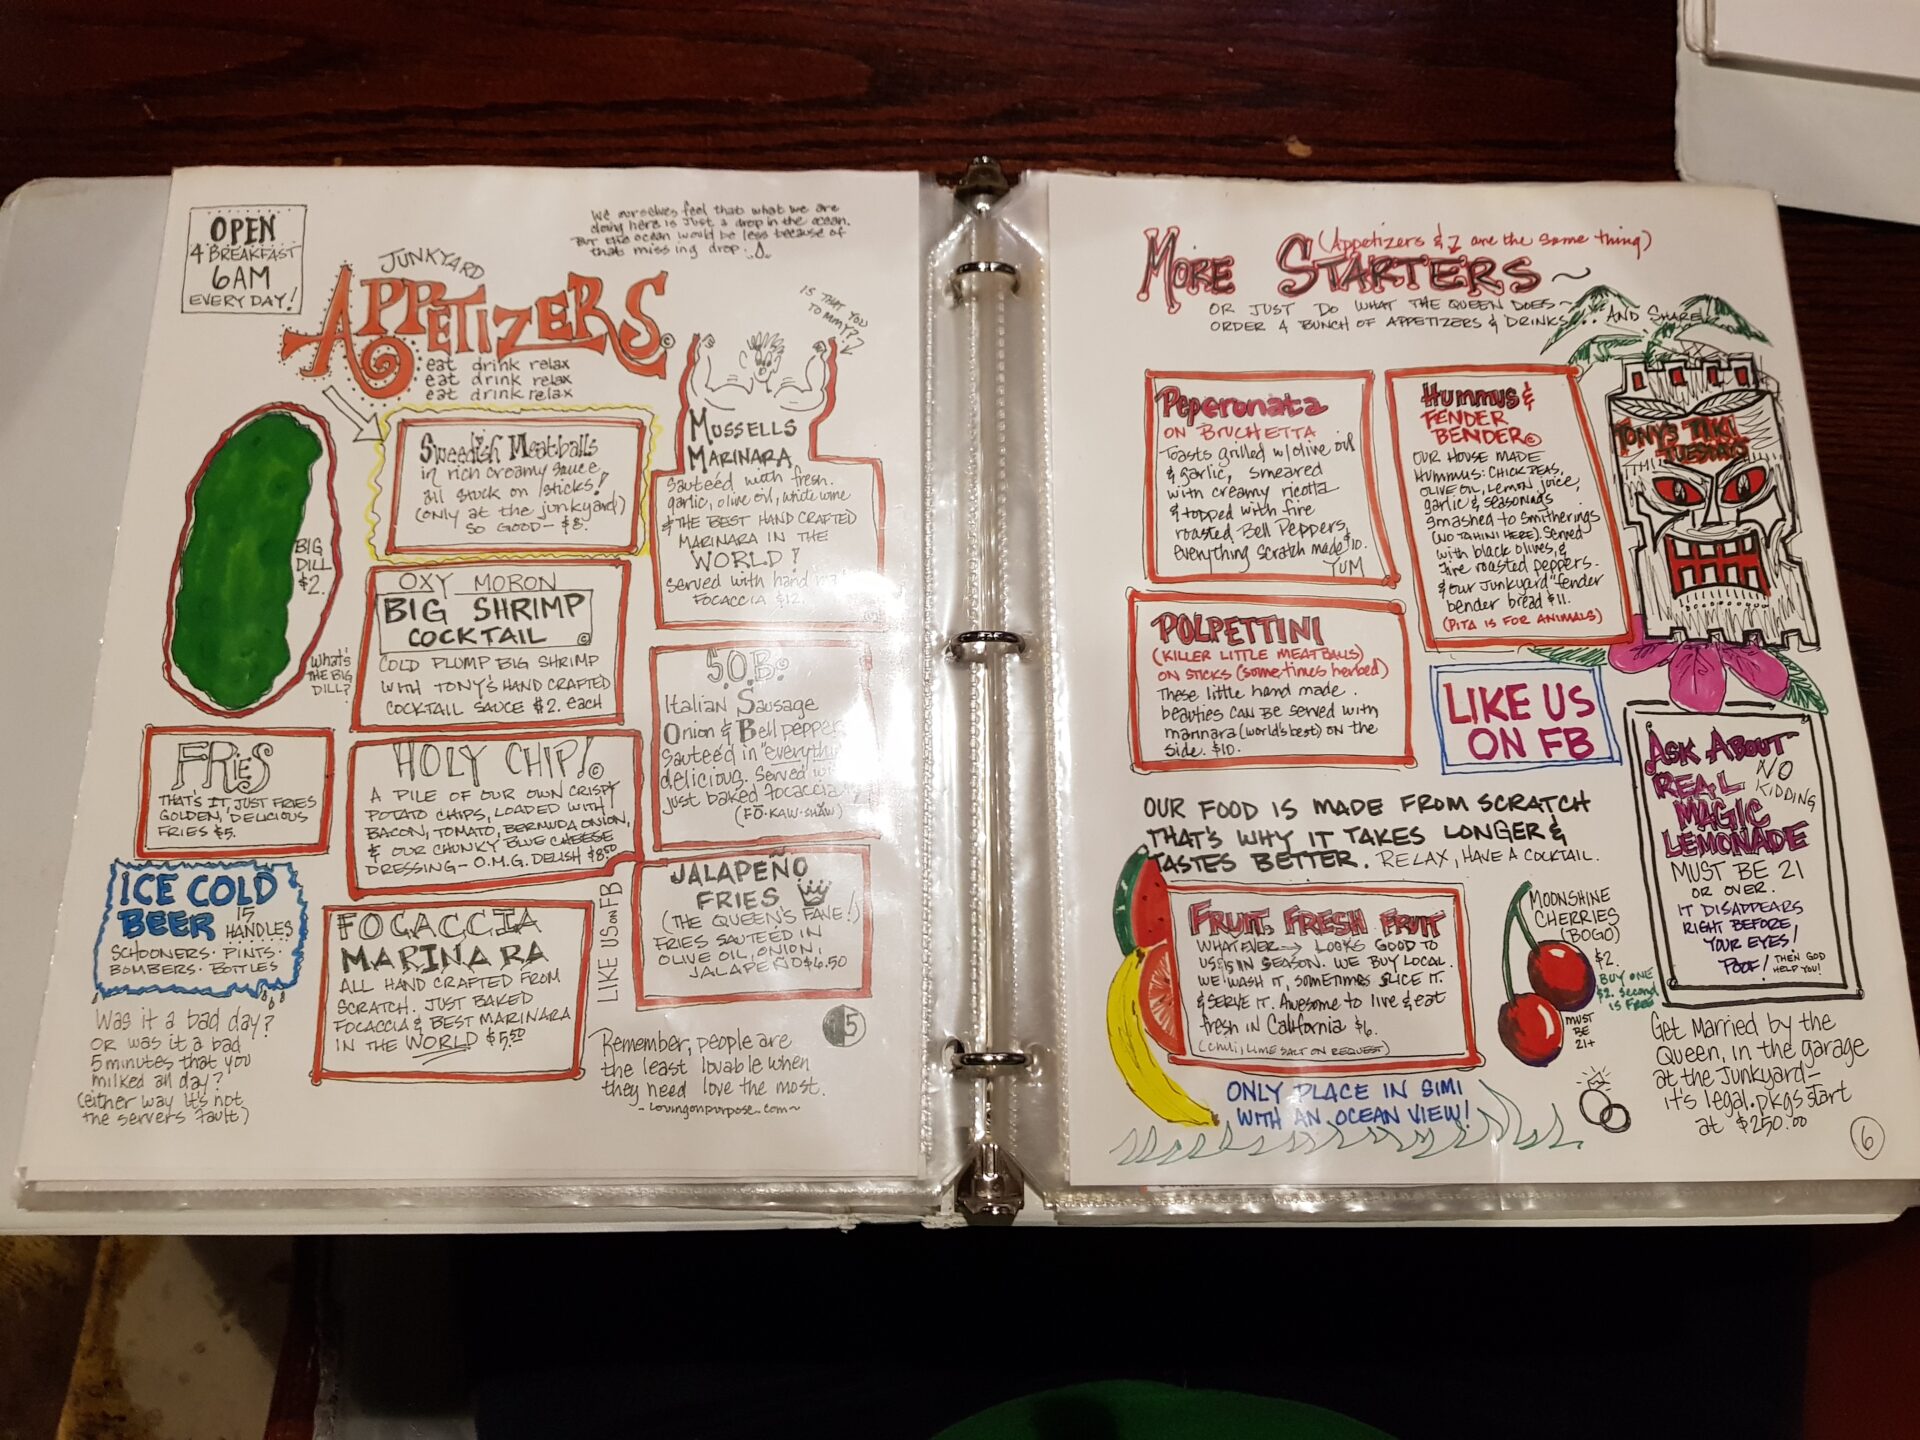 OPEN
4 BREAKFAST
6AM
EVERY DAY!
We ourselves feel that what we are
doing here is just a drop in the ocean.
But the ocean would be less because of
that missing drop.
JUNKYARD
APPETIZERS ©
eat drink relax
eat drink relax
eat drink relax
IS THAT YOU
TOMMY??
BIG
DILL
$2.
WHAT'S
THE BIG
DILL?
Swedish Meatballs
in rich creamy sauce
all stuck on sticks!
(only at the junkyard)
SO GOOD- $8.
MUSSELLS
MARINARA
Sauteéd with fresh
garlic, olive oil, white wine
& THE BEST HAND CRAFTED
MARINARA IN THE
WORLD!
Served with hand
FOCACCIA $12.
OXY MORON
BIG SHRIMP
COCKTAIL ©
COLD PLUMP BIG SHRIMP
WITH TONY'S HAND CRAFTED
COCKTAIL SAUCE $2. EACH
S.O.B.
Italian Sausage
Onion & Bell pepper
Sauteéd in "everything
delicious. Served
just baked focaccia
(FO-KAW-SHAW)
FRIES
THAT'S IT, JUST FRIES
GOLDEN, DELICIOUS
FRIES $5.
HOLY CHIP! ©
A PILE OF OUR OWN CRISPY
POTATO CHIPS, LOADED WITH
BACON, TOMATO, BERMUDA ONION,
& OUR CHUNKY BLUE CHEESE
DRESSING- O.M.G. DELISH $8.50
JALAPEÑO
FRIES
(THE QUEEN'S FAVE!)
FRIES SAUTEED IN
OLIVE OIL, ONION,
JALAPEÑO $6.50
ICE COLD
BEER 15
HANDLES
SCHOONERS · PINTS ·
BOMBERS · BOTTLES
FOCACCIA
MARINARA
ALL HAND CRAFTED FROM
SCRATCH. JUST BAKED
FOCACCIA & BEST MARINARA
IN THE WORLD $5.50
LIKE US ON FB
Was it a bad day?
OR was it a bad
5 minutes that you
milked all day?
(either way it's not
the servers fault)
Remember, people are
the least lovable when
they need love the most.
~lovingonpurpose.com~
5
MORE STARTERS~
(Appetizers & ↑ are the same thing)
OR JUST DO WHAT THE QUEEN DOES~
ORDER A BUNCH OF APPETIZERS & DRINKS... AND SHARE!
Peperonata
ON BRUCHETTA
Toasts grilled w/olive oil
& garlic, smeared
with creamy ricotta
& topped with fire
roasted Bell Peppers,
everything scratch made $10.
YUM
HUMMUS &
FENDER
BENDER ©
OUR HOUSE MADE
HUMMUS: CHICK PEAS,
OLIVE OIL, LEMON JUICE,
garlic & seasonings
smashed to smitherings
(NO TAHINI HERE). Served
with black olives, &
fire roasted peppers.
& our Junkyard "fender
bender bread $11.
(PITA IS FOR ANIMALS)
TONY'S TIKI
TUESDAYS
POLPETTINI
(KILLER LITTLE MEATBALLS)
ON STICKS (sometimes herbed)
These little hand made
beauties CAN BE served with
marinara (world's best) ON the
side. $10.
LIKE US
ON FB
ASK ABOUT
REAL
MAGIC
LEMONADE
NO
KIDDING
MUST BE 21
OR OVER.
IT DISAPPEARS
RIGHT BEFORE
YOUR EYES!
POOF! THEN GOD
HELP YOU!
OUR FOOD IS MADE FROM SCRATCH
THAT'S WHY IT TAKES LONGER &
TASTES BETTER. RELAX, HAVE A COCKTAIL.
FRUIT, FRESH FRUIT
WHATEVER → LOOKS GOOD TO
US & IS IN SEASON. WE BUY LOCAL.
WE WASH IT, SOMETIMES SLICE IT.
& SERVE IT. Awesome to live & eat
fresh in California $6.
(CHILI, LIME SALT ON REQUEST)
MOONSHINE
CHERRIES
(BOGO)
$2.
BUY ONE
$2. Second
IS FREE
MUST
BE
21+
ONLY PLACE IN SIMI
WITH AN OCEAN VIEW!
Get Married by the
Queen, in the garage
at the Junkyard-
it's legal. pkgs start
at $250.00
6